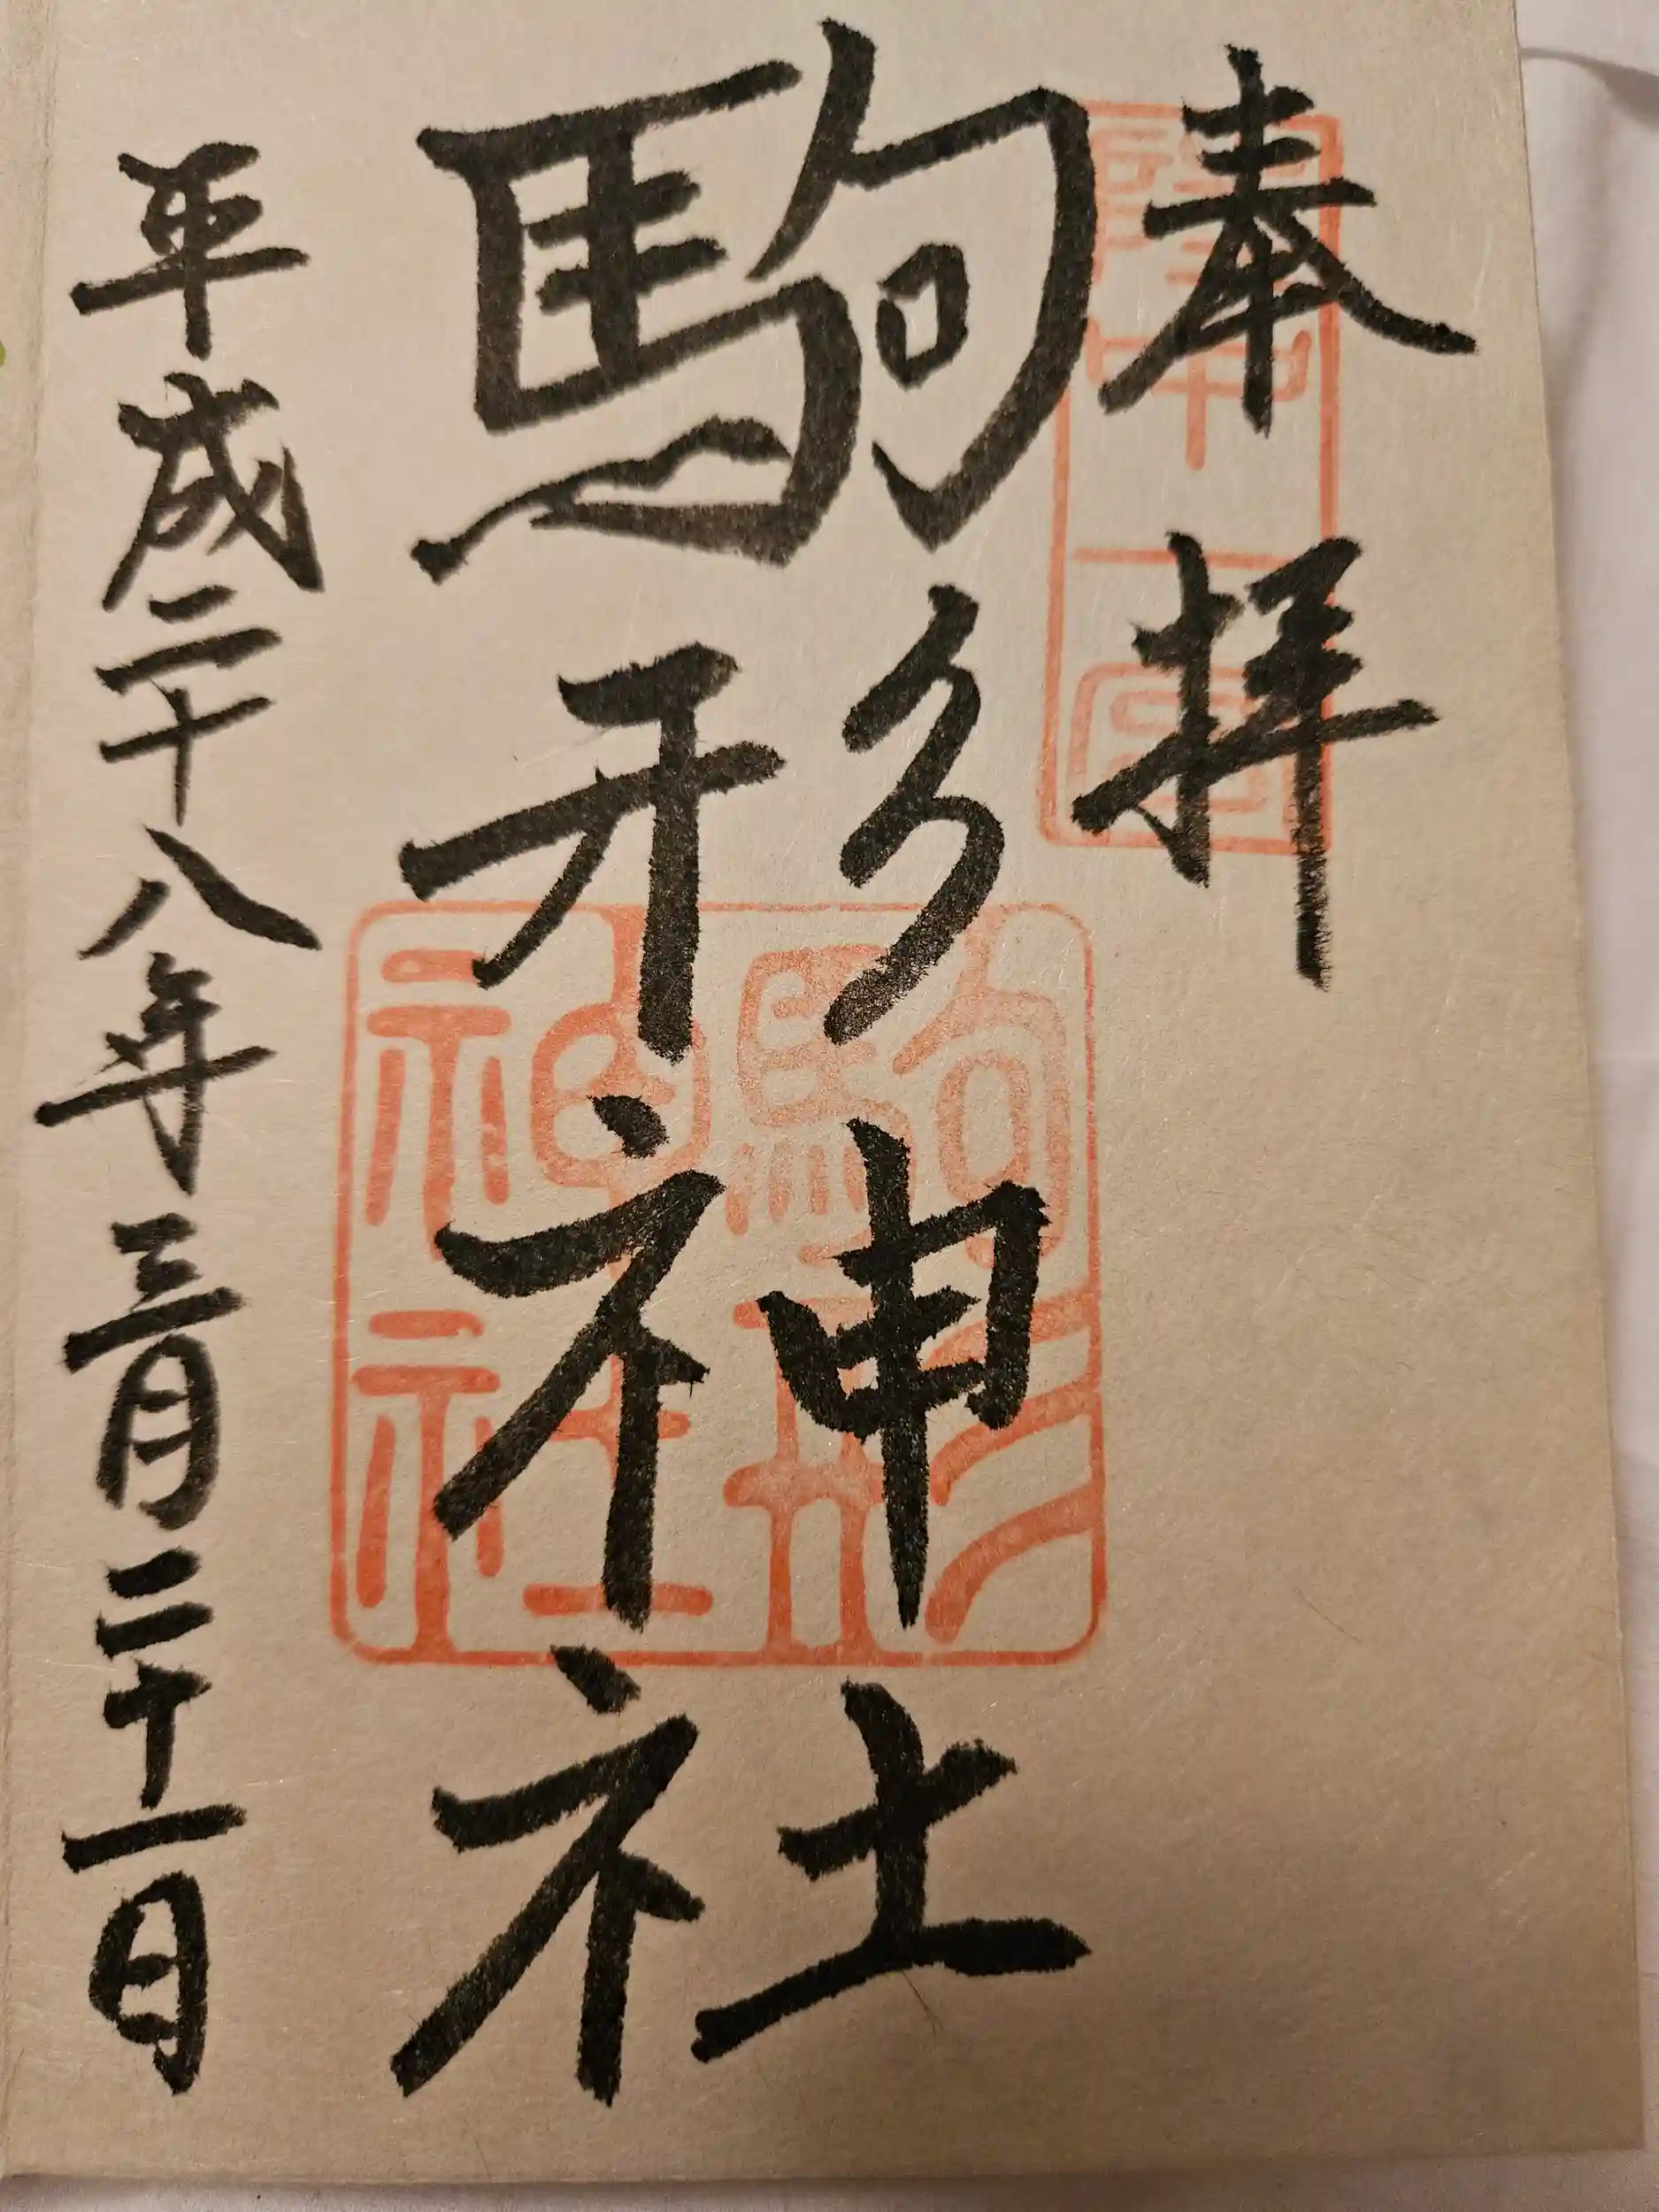 奉拝
陸中一宮
駒形神社
駒形
神社
平成二十八年三月二十一日